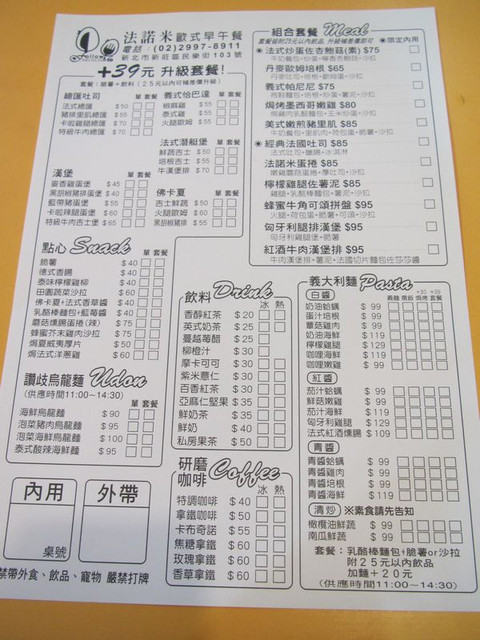 法諾米歐式早午餐
電話：(02)2997-8911
新北市新莊區民樂街103號
+39元 升級套餐!
套餐：脆薯+飲料(25元以內可補差價升級)
總匯吐司 單 套餐
法式總匯 $50
豬排里肌總匯 $55
卡啦雞腿總匯 $55
特級牛肉總匯 $70
義式恰巴達 單 套餐
椒麻雞 $55
泰式雞 $55
火腿歐姆 $55
法式潛艇堡 單 套餐
鮮蔬吉士 $50
培根吉士 $55
牛漢堡排 $70
漢堡 單 套餐
蛋香雞蛋堡 $45
黑胡椒豬排蛋堡 $40
藍帶豬蛋堡 $55
卡啦辣腿蛋堡 $60
特級牛肉吉士堡 $65
佛卡夏 單 套餐
吉士鮮蔬 $50
火腿歐姆 $60
黑胡椒豬排 $55
點心 Snack 單 套餐
脆薯 $40
德式香腸 $40
泰味檸檬雞柳 $40
田園蔬菜沙拉 $60
佛卡夏+法式香草醬 $40
乳酪棒麵包+藍莓醬 $40
蘑菇燻腸蛋捲(辣) $75
蜂蜜芥末雞肉沙拉 $75
焗夏威夷厚片 $50
焗法式洋蔥雞 $60
讚歧烏龍麵 Udon
(供應時間11:00~14:30) 單 套餐
海鮮烏龍麵 $90
泡菜豬肉烏龍麵 $95
泡菜海鮮烏龍麵 $100
泰式酸辣海鮮麵 $95
內用
桌號
外帶
禁帶外食、飲品、寵物 嚴禁打牌
組合套餐 Meal
套餐皆附25元以內飲品,升級補差價即可 ◉限定內用
◉法式炒蛋佐杏鮑菇(素) $75
丹麥歐姆培根 $65
義式帕尼尼 $75
焗烤墨西哥嫩雞 $80
美式嫩煎豬里肌 $85
◉經典法國吐司 $85
法式吐司+臘腸+冰淇淋
法諾米蛋捲 $85
嫩雞蘑菇蛋捲+厚吐司+沙拉
檸檬雞腿佐薯泥 $85
雞腿+乳酪棒麵包+薯泥+沙拉
蜂蜜牛角可頌拼盤 $95
火腿+荷包蛋+脆薯+可頌+沙拉
匈牙利腿排漢堡 $95
匈牙利雞腿漢堡+脆薯
紅酒牛肉漢堡排 $95
牛肉漢堡排+薯泥+法國切片麵包佐莎莎醬
飲料 Drink 冰 熱
香醇紅茶 $20
英式奶茶 $25
蔓越莓醋 $30
柳橙汁 $30
摩卡可可 $30
紫米薏仁 $30
百香紅茶 $30
亞麻仁堅果 $35
鮮奶茶 $35
鮮奶 $40
私房果茶 $50
研磨咖啡 Coffee 冰 熱
特調咖啡 $40
拿鐵咖啡 $50
卡布奇諾 $55
焦糖拿鐵 $60
玫瑰拿鐵 $60
香草拿鐵 $60
義大利麵 Pasta
白醬
奶油蛤蠣 $99
蛋汁培根 $99
蕈菇雞肉 $99
奶油海鮮 $119
檸檬雞腿 $129
咖哩海鮮 $119
咖哩嫩雞 $99
紅醬
茄汁蛤蠣 $99
鮮菇嫩雞 $99
茄汁海鮮 $119
匈牙利雞腿 $129
法式紅酒燻腸 $109
青醬
青醬蛤蠣 $99
青醬雞肉 $99
青醬培根 $99
青醬海鮮 $119
清炒 ※素食請先告知
橄欖油鮮蔬 $99
南瓜鮮蔬 $99
套餐：乳酪棒麵包+脆薯or沙拉
附25元以內飲品
加麵+20元
(供應時間11:00~14:30)